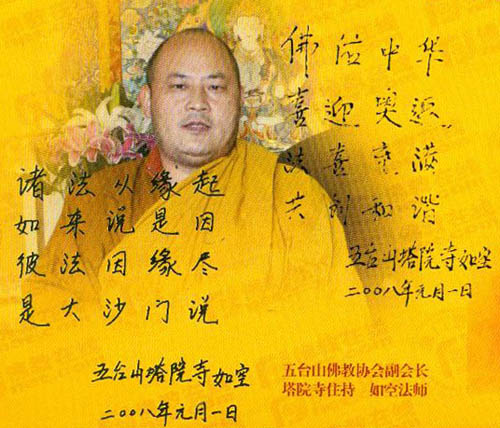 佛 中华
喜迎奥运
法喜充满
共创和谐
五台山塔院寺如空
二〇〇八年元月一日
诸法从缘起
如来说是因
彼法因缘尽
是大沙门说
五台山塔院寺如空
二〇〇八年元月一日
五台山佛教协会副会长
塔院寺住持 如空法师